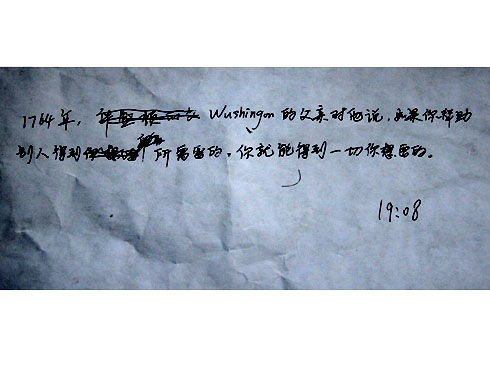 1764年, Wushingon的父亲对他说,如果你帮助
别人得到他们所需要的,你就能得到一切你想要的。
19:08